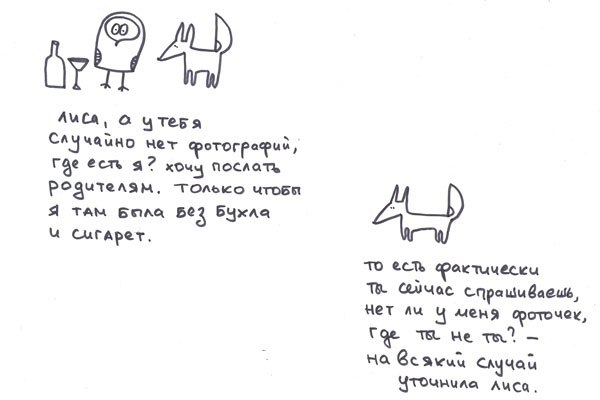 лиса, а у тебя
случайно нет фотографий,
где есть я? хочу послать
родителям. только чтобы
я там была без бухла
и сигарет.
то есть фактически
ты сейчас спрашиваешь,
нет ли у меня фоточек,
где ты не ты? –
на всякий случай
уточнила лиса.